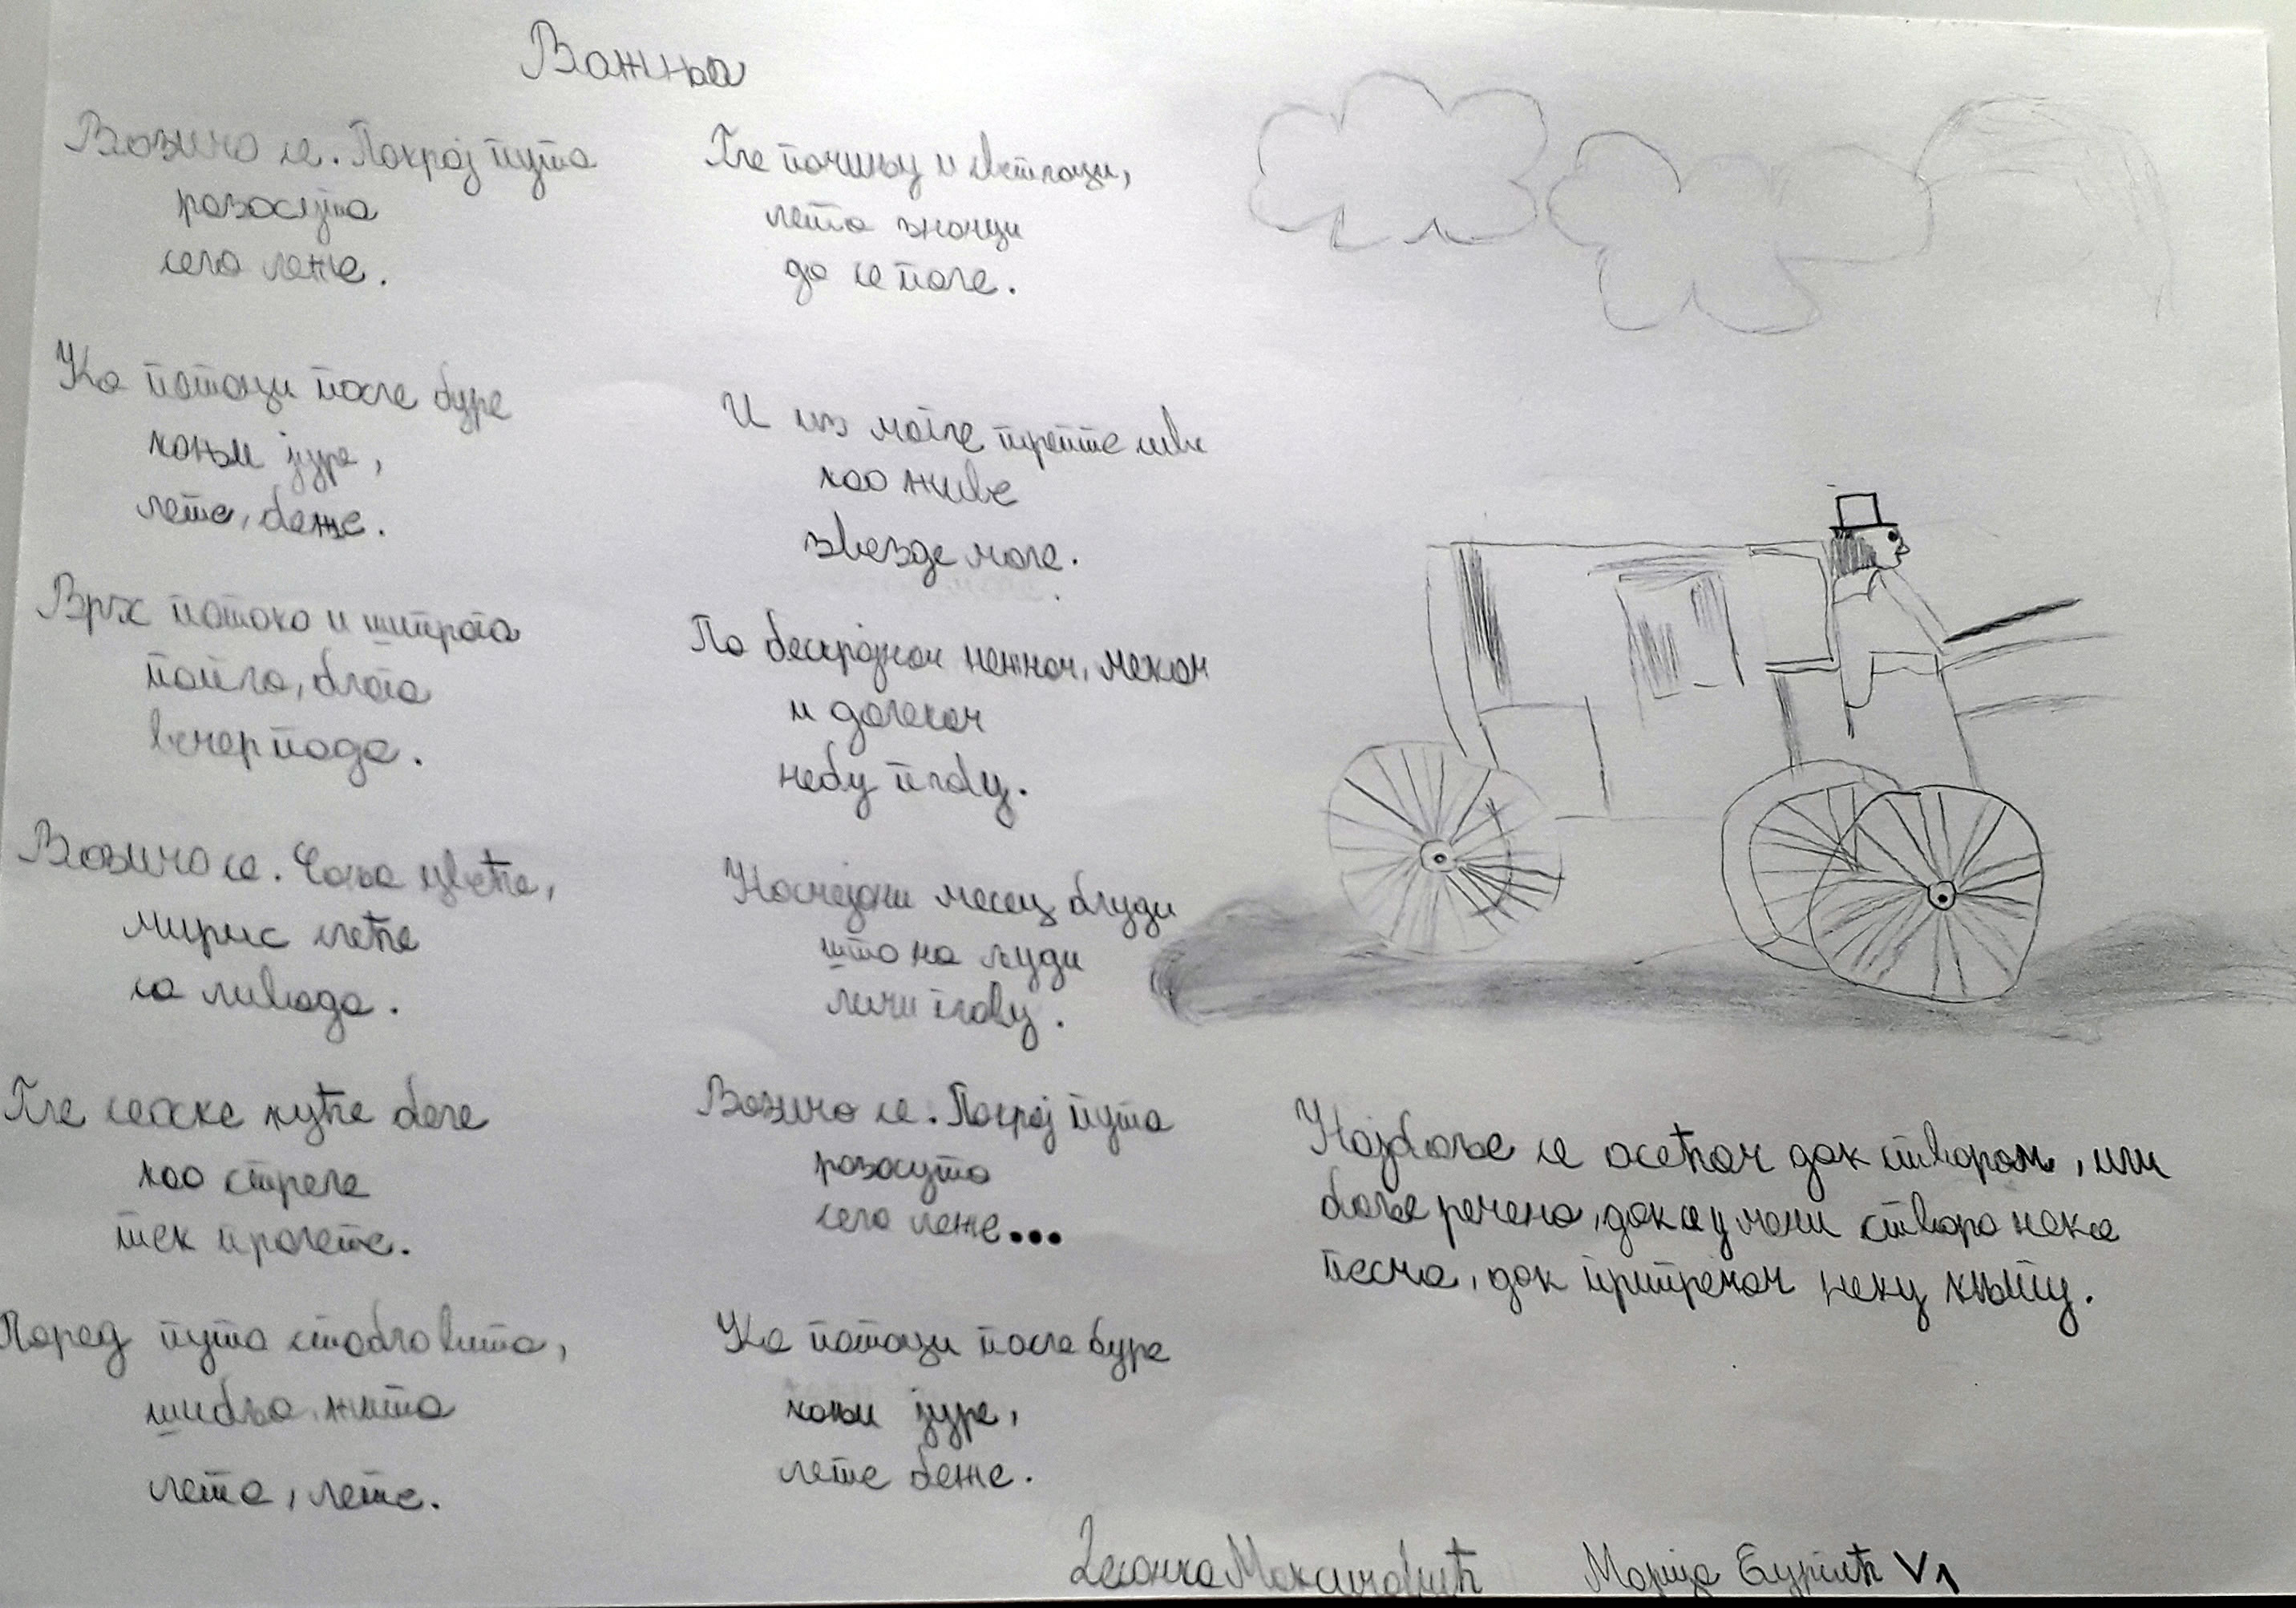 Вожња
Возимо се. Покрај пута
разасута
села леже.
Ко потоци после буре
коњи јуре,
лете, беже.
Врх потока и шипрага
топла, блага
вечер пада.
Возимо се. Сања цвеће,
мирис слеће
са ливада.
Гле сеоске куће беле
као стреле
тек пролете.
Поред пута стабла вита,
шибља, жита
лете, лете.
Гле почињу и светлаци,
лета знаци
да се пале.
И из магле трепте сиве
као живе
звезде мале.
По бескрајном нежном, меком
и далеком
небу плаву.
Насмејани месец блуди
што на људи
личи главу.
Возимо се. Покрај пута
разасута
села леже...
Ко потоци после буре
коњи јуре,
лете беже.
Најбоље се осећам док стварам, или
боље речено, док се у мени ствара нека
песма, док припремам неку књигу.
Десанка Максимовић
Марија V1